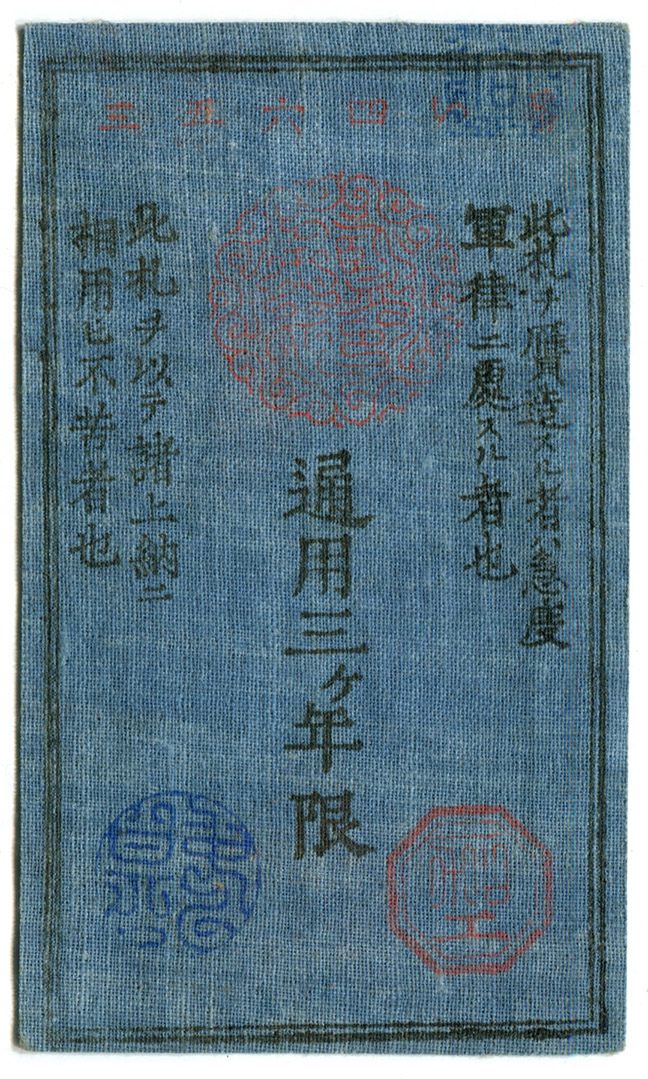 い四六五三
此札ヲ贋造スル者ハ急度
軍律ニ處スル者也
通用三ヶ年限
此札ヲ以テ諸上納ニ
相用ヒ不苦者也